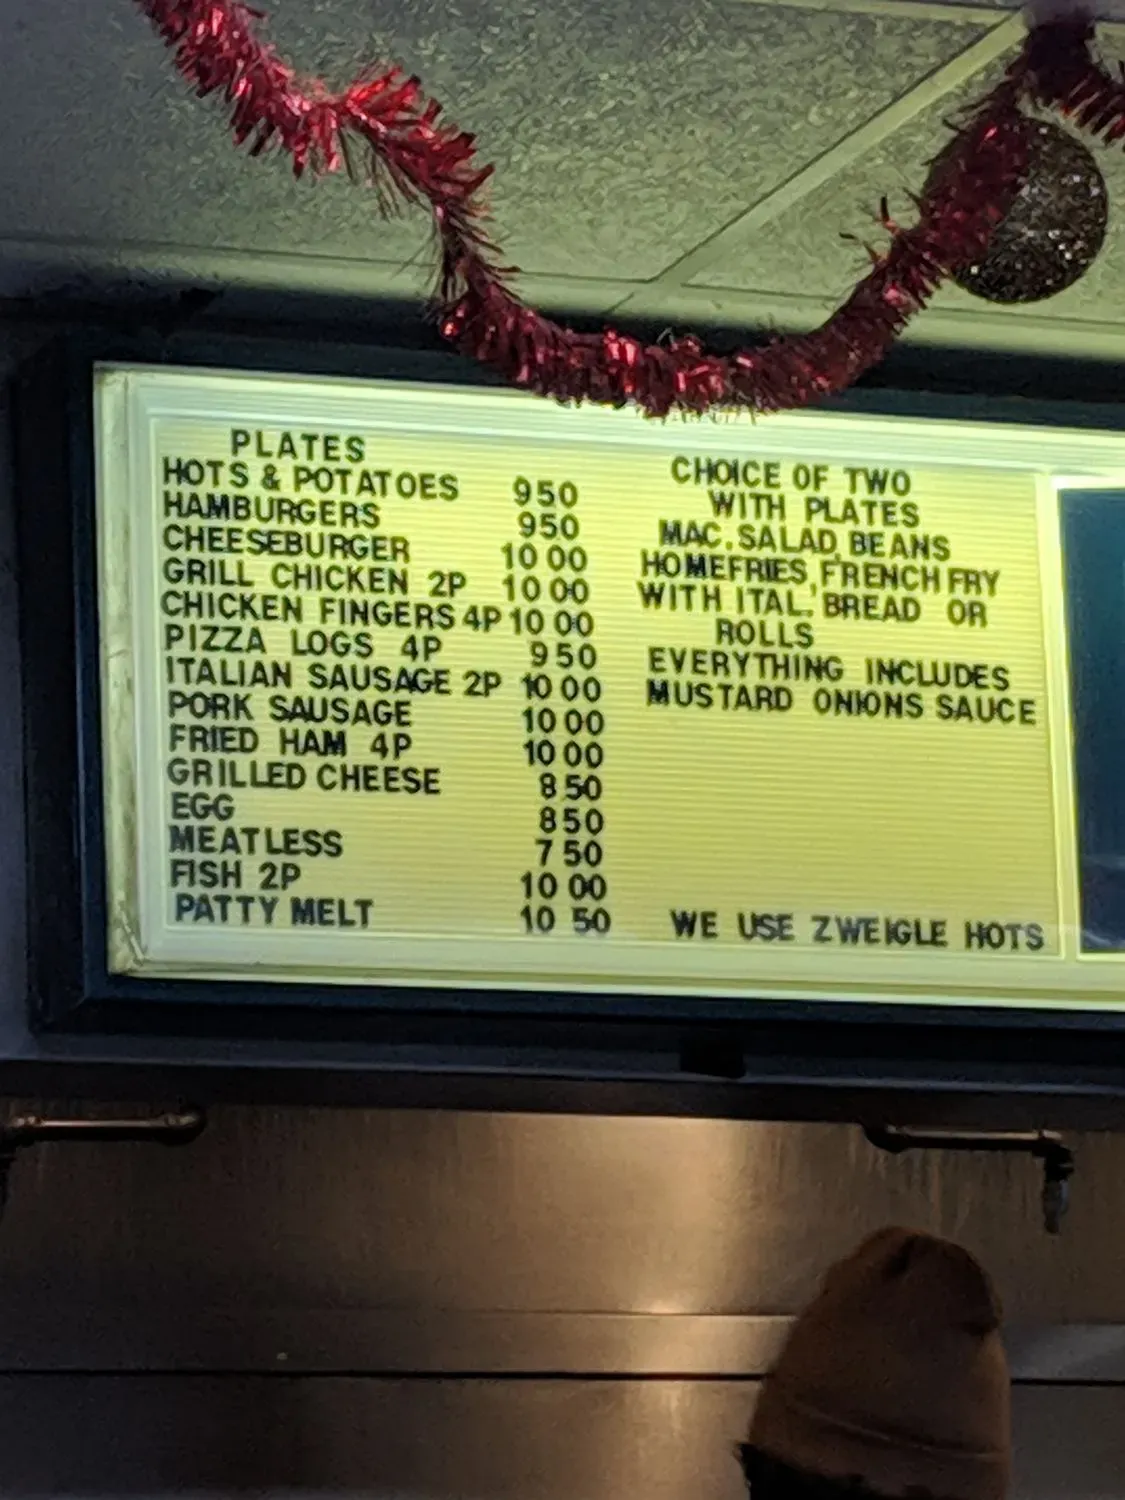 PLATES
HOTS & POTATOES 950
HAMBURGERS 950
CHEESEBURGER 10 00
GRILL CHICKEN 2P 10 00
CHICKEN FINGERS 4P 10 00
PIZZA LOGS 4P 950
ITALIAN SAUSAGE 2P 10 00
PORK SAUSAGE 10 00
FRIED HAM 4P 10 00
GRILLED CHEESE 8 50
EGG 850
MEATLESS 7 50
FISH 2P 10 00
PATTY MELT 10 50
CHOICE OF TWO
WITH PLATES
MAC. SALAD, BEANS
HOMEFRIES, FRENCH FRY
WITH ITAL. BREAD OR
ROLLS
EVERYTHING INCLUDES
MUSTARD ONIONS SAUCE
WE USE ZWEIGLE HOTS